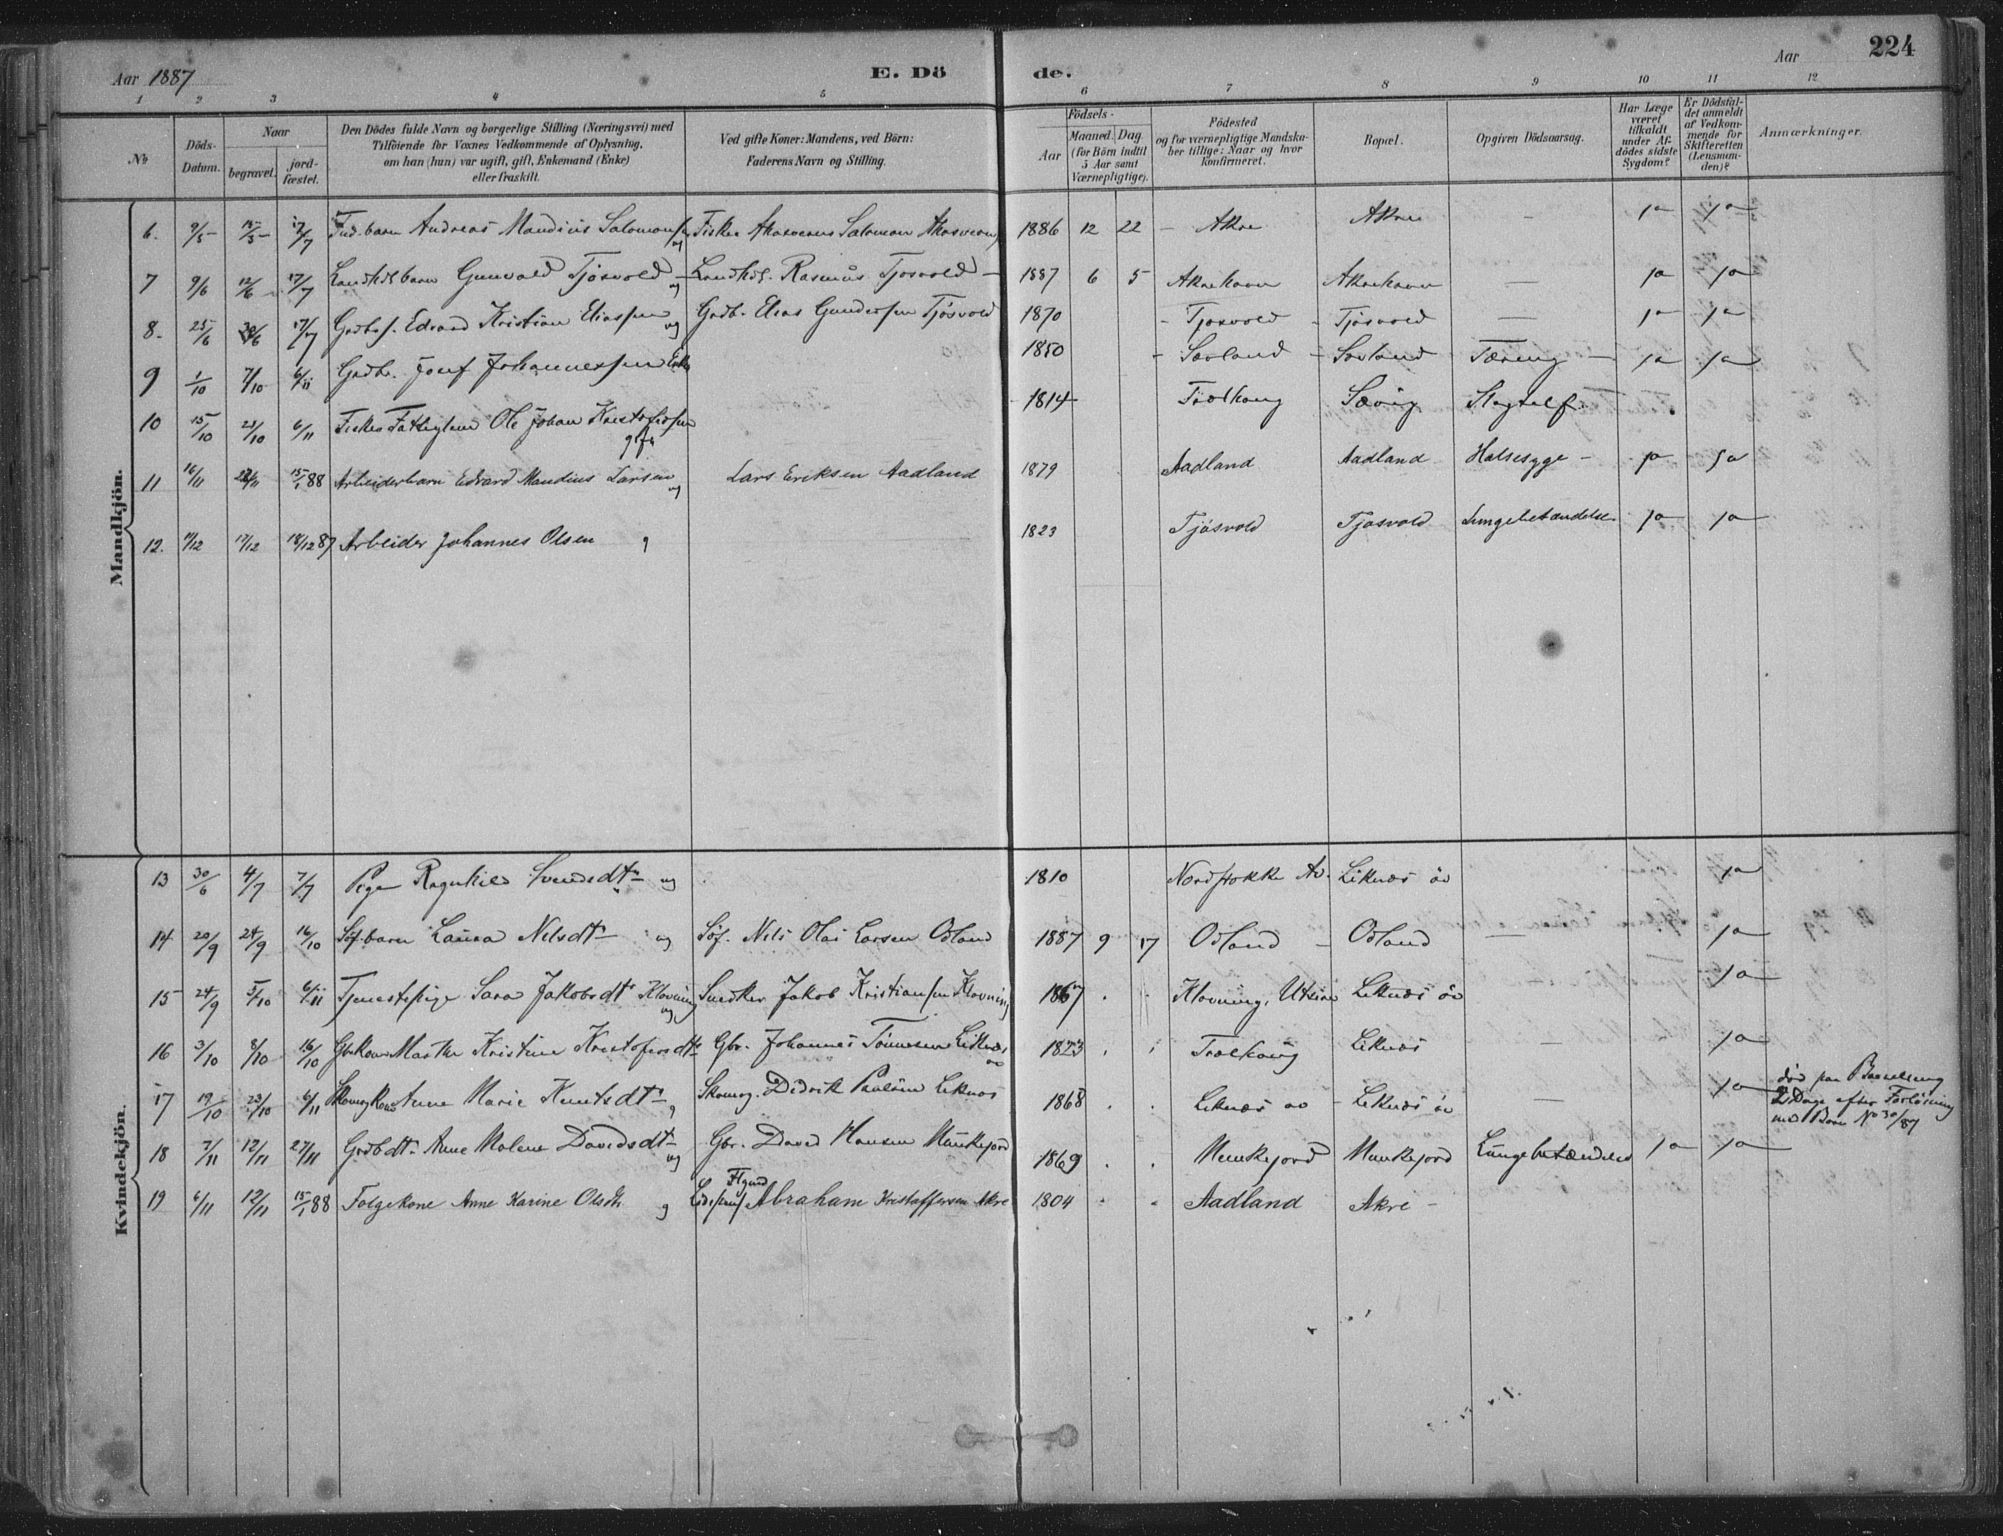 Aar 1887
E. Dö
de.
Aar
224
1 2 3 4 5 6 7 8 9 10 11 12
No
Döds-
Datum.
Naar
begravet.
jord-
fæstet.
Den Dödes fulde Navn og borgerlige Stilling (Næringsvei) med
Tilföiende for Voxnes Vedkommende af Oplysning,
om han (hun) var ugift, gift, Enkemand (Enke)
eller fraskilt.
Ved gifte Koner: Mandens, ved Börn:
Faderens Navn og Stilling.
Födsels-
Aar
Maaned. Dag.
(for Börn indtil
5 Aar samt
Værnepligtige).
Födested
og for værnepligtige Mandska-
ber tillige: Naar og hvor
konfirmeret.
Bopæl.
Opgiven Dödsaarsag.
Har Læge
været
tilkaldt
under Af-
dödes sidste
Sygdom?
Er Dödsfal-
det anmeldt
af Vedkom-
mende for
Skifteretten
(Lensman-
den)?
Anmærkninger.
Mandkjön.
6. 9/5 15/5 17/7 Indbarn Andreas Mandius Salomonsen ug Fisker Akasverus Salomon 1886 12 22 - Akre Akre - ja ja
7 9/6 12/6 17/7 Landhdl barn Gunvald Tjösvold - ug Landhdl. Rasmus Tjosvold - 1887 6 5 Akrehavn Akrehavn - ja ja
8. 25/6 30/6 17/7 Grdbs. Edvard Kristian Eliassen ug Grdb. Elias Gundersen Tjösvold 1870 - Tjosvold - Tjösvold - ja ja
9 1/10 7/10 6/11 Grdbr. Josef Johannessen Enke 1850 - Sævland - Sævland Tæring - ja ja
10 15/10 21/10 6/11 Fisker Fattiglem Ole Johan Kristofersen gift 1814 Trælhaug Sævig Slagtelf.
11 16/11 22/11 15/1 88 Arbeiderbarn Edvard Mandius Larsen ug Lars Eriksen Aadland 1879 Aadland Aadland Halsesyge - ja ja
12. 11/12 17/12 18/12 87 Arbeider Johannes Olsen g 1823 Tjösvold Tjosvold Lungebetændelse ja ja
Kvindekjön.
13 30/6 4/7 7/7 Pige Ragnhild Svendsdtr ug 1810 Nordstokke Av. Liknæs öv ja
14 20/9 24/9 16/10 Söfbarn Laura Nilsdtr - ug Söf. Nils Olai Larsen Odland 1887 9 17 Odland - Odland - ja
15 24/9 5/10 6/11 Tjenestepige Sara Jakobsdtr Klovning ug Snedker Jakob Kristiansen Klovning 1867 Klovning, Utsire Liknæs öv ja
16 3/10 8/10 16/10 Gbrkone Marthe Kristine Kristofersdtr Gbr. Johannes Tönnesen Liknæs öv 1823 Trælhaug Liknæs - ja
17 19/10 23/10 6/11 Skomagkone Anne Marie Knutsdtr g Skomag. Didrik Paulsen Liknæs 1868 Liknæs öv - Liknæs öv - ja död paa Barselseng
2 Dage efter Forlösning
med Barn No 30/87
18 7/11 12/11 27/11 Grdbdtr Anne Malene Davidsdtr ug Gbr. David Hansen Munkejord 1869 Munkejord Munkejord Lungebetændelse ja ja
19 6/11 12/11 15/1 88 Folgekone Anne Karine Olsdtr g Abraham Kristaffersen Akre 1804 Aadland Akre -